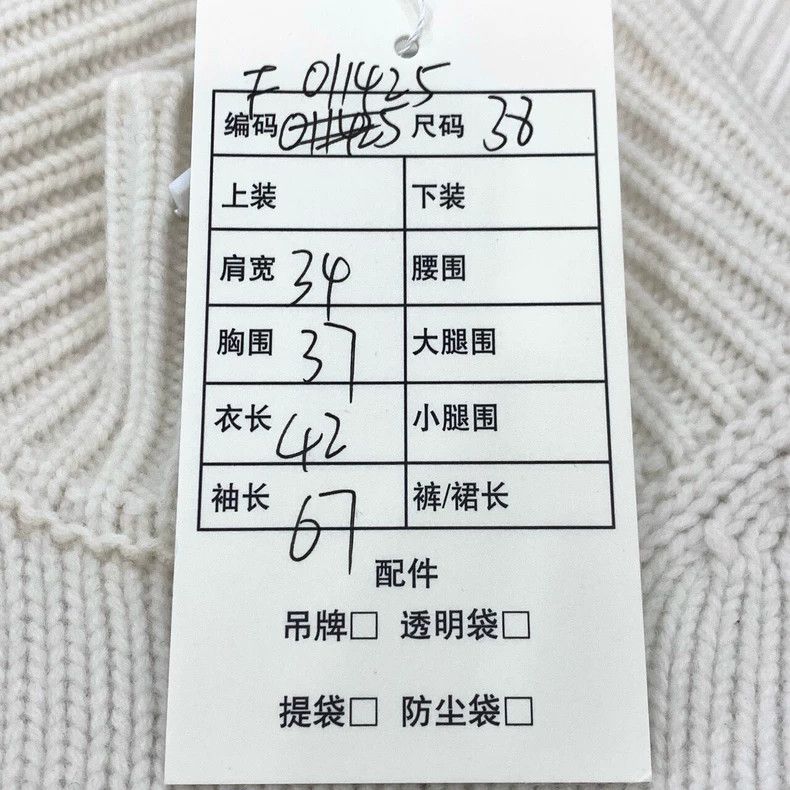 F 011425
编码 011425 尺码 38
上装 下装
肩宽 34 腰围
胸围 37 大腿围
衣长 42 小腿围
袖长 67 裤/裙长
配件
吊牌□ 透明袋□
提袋□ 防尘袋□